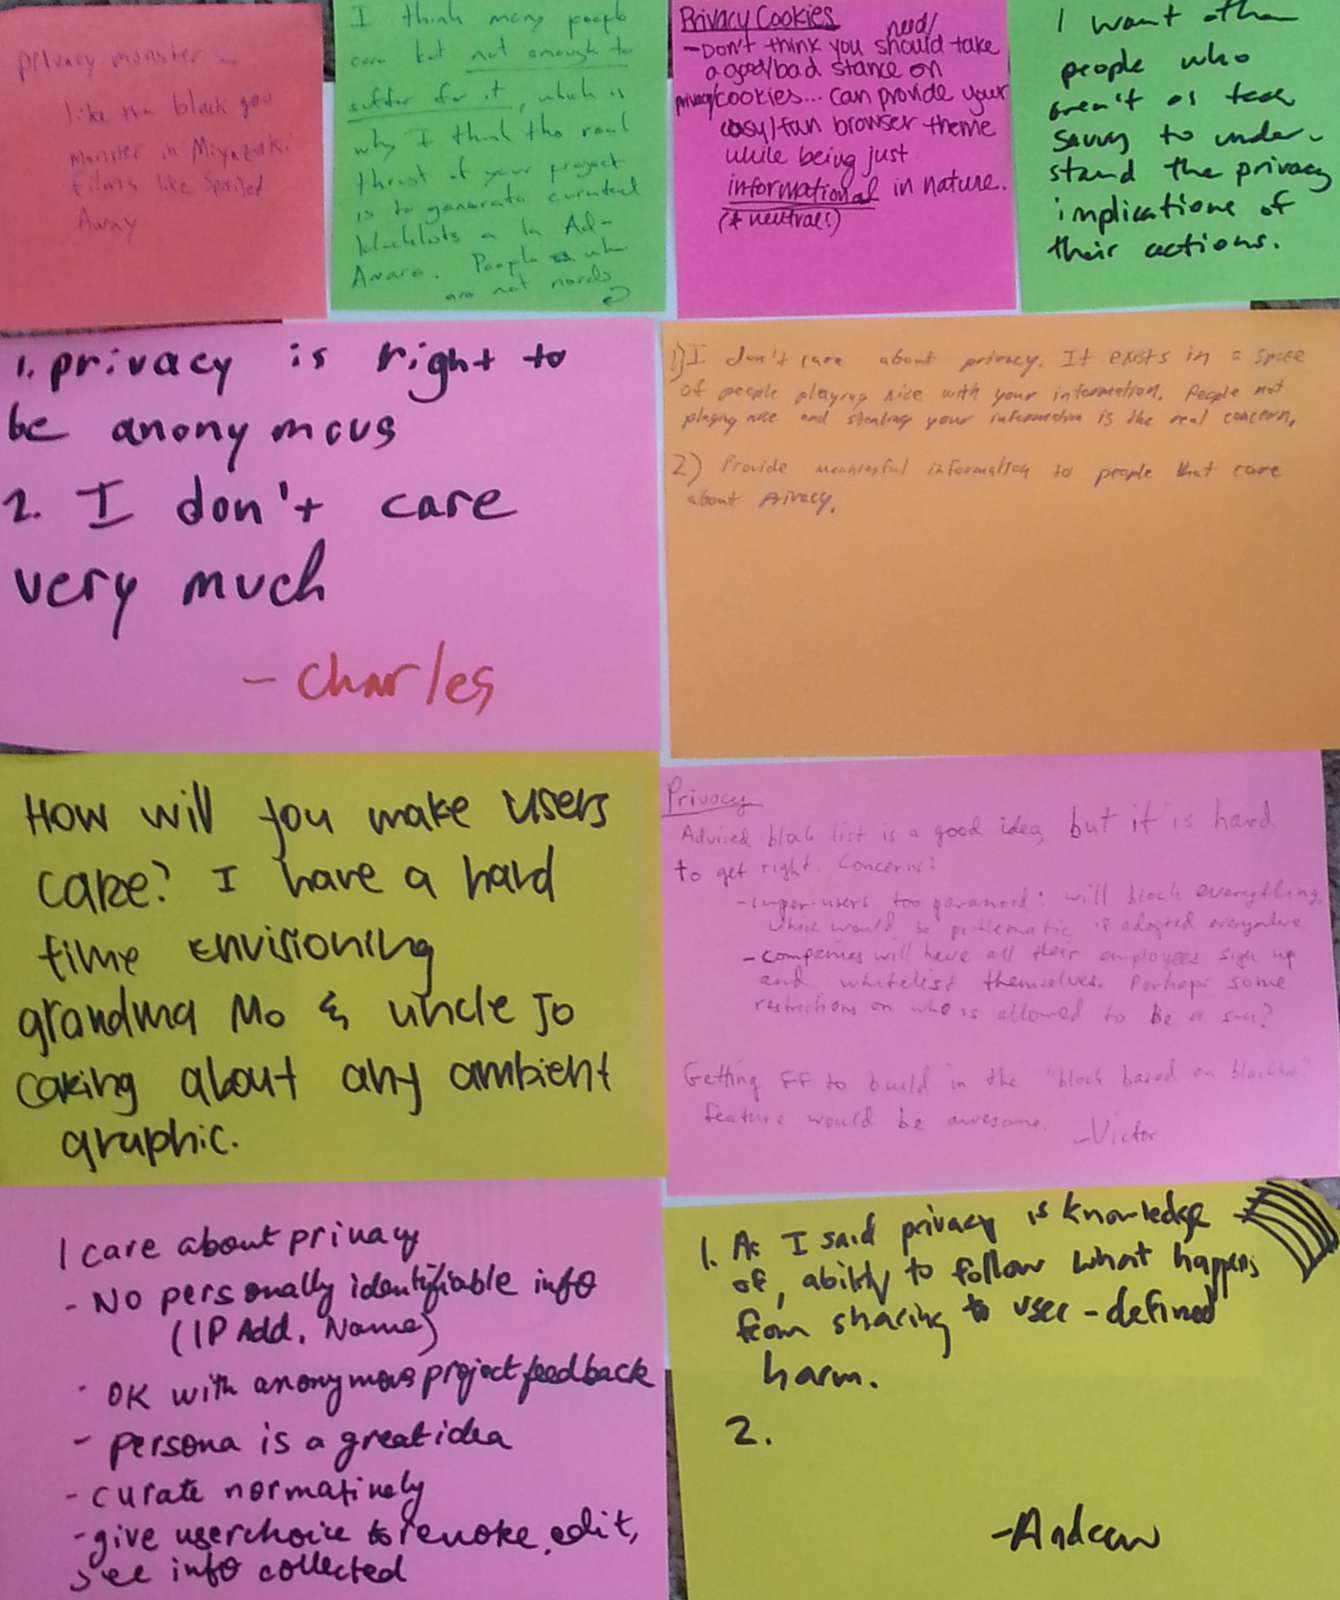 privacy monster -
like the black goo
monster in Miyazaki
films like Spirited
Away
I think many people
care but not enough to
suffer for it, which is
why I think the real
thrust of your project
is to generate curated
blacklists a la Ad-
Aware. People who
are not nerds
Privacy Cookies
need/
- Don't think you should take
a good/bad stance on
privacy/cookies... can provide your
cosy/fun browser theme
while being just
informational in nature.
(+ neutral!)
I want other
people who
aren't as tech
savvy to under-
stand the privacy
implications of
their actions.
1. privacy is right to
be anonymous
2. I don't care
very much
- Charles
1) I don't care about privacy. It exists in a space
of people playing nice with your information. People not
playing nice and stealing your information is the real concern.
2) Provide meaningful information to people that care
about privacy.
How will you make users
care? I have a hard
time envisioning
grandma Mo & uncle Jo
caring about any ambient
graphic.
Privacy
Advised block list is a good idea, but it is hard
to get right. Concerns:
- super-users too paranoid: will block everything,
which would be problematic if adopted everywhere
- companies will have all their employees sign up
and whitelist themselves. Perhaps some
restrictions on who is allowed to be a s-u?
Getting FF to build in the "block based on blacklist"
feature would be awesome.
- Victor
I care about privacy
- No personally identifiable info
(IP Add, Name)
- OK with anonymous project feedback
- persona is a great idea
- curate normatively
- give user choice to revoke, edit,
see info collected
1. As I said privacy is knowledge
of, ability to follow what happens
from sharing to user-defined
harm.
2.
- Andrew